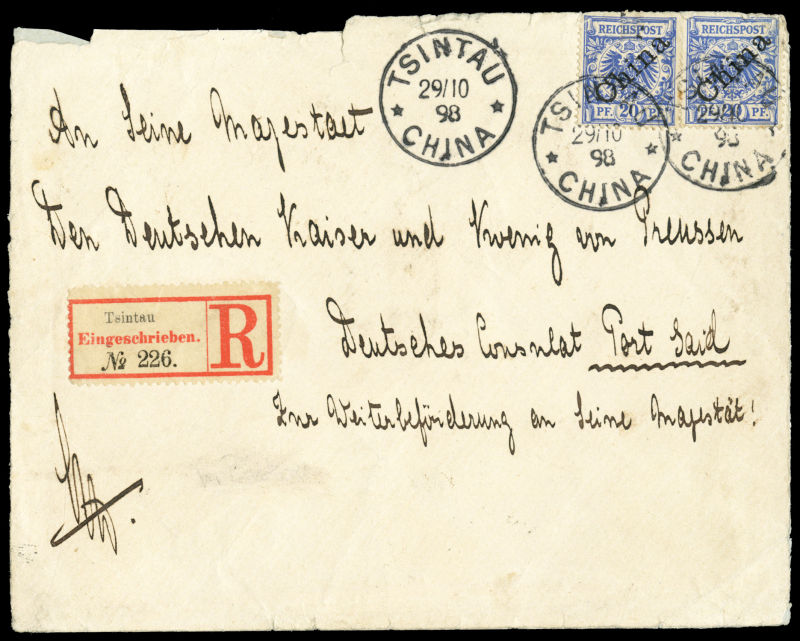 REICHSPOST REICHSPOST
China China
PF. 20 PF. PF. 20 PF.
TSINTAU
29/10
98
CHINA
TSINTAU
29/10
98
CHINA
29/10
98
CHINA
An Seine Majestaet
Den Deutschen Kaiser und Koenig von Preussen
Tsintau
Eingeschrieben.
№ 226.
R
Deutsches Consulat Port Said
Zur Weiterbeförderung an Seine Majestät!